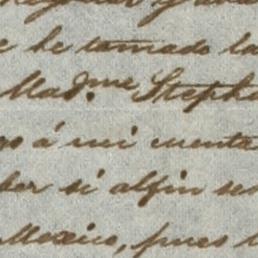 e he tomado la
Mad.me Stephe
go á mi cuenta
ber si alfin se
Mexico, pues